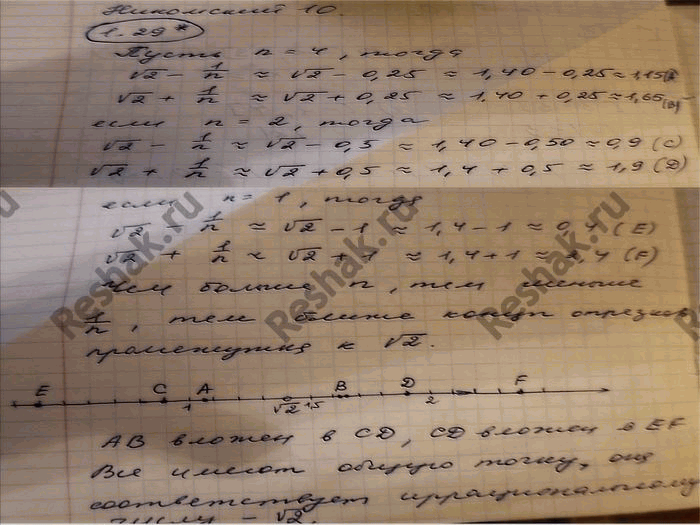 Никольский 10.
1.29*
Пусть n = 4, тогда
√2 - 1/n ≈ √2 - 0,25 ≈ 1,40 - 0,25 ≈ 1,15 (A)
√2 + 1/n ≈ √2 + 0,25 ≈ 1,40 + 0,25 ≈ 1,65 (B)
если n = 2, тогда
√2 - 1/n ≈ √2 - 0,5 ≈ 1,40 - 0,50 ≈ 0,9 (C)
√2 + 1/n ≈ √2 + 0,5 ≈ 1,4 + 0,5 ≈ 1,9 (D)
если n = 1, тогда
√2 - 1/n ≈ √2 - 1 ≈ 1,4 - 1 ≈ 0,4 (E)
√2 + 1/n ≈ √2 + 1 ≈ 1,4 + 1 ≈ 2,4 (F)
Чем больше n, тем меньше
1/n, тем ближе концы
промежутка к √2.
E C A B D F
1 √2 1,5 2
AB вложен в CD, CD вложен в EF
Все имеют общую точку, она
соответствует иррациональному
числу - √2.
Reshak.ru
Reshak.ru
Reshak.ru